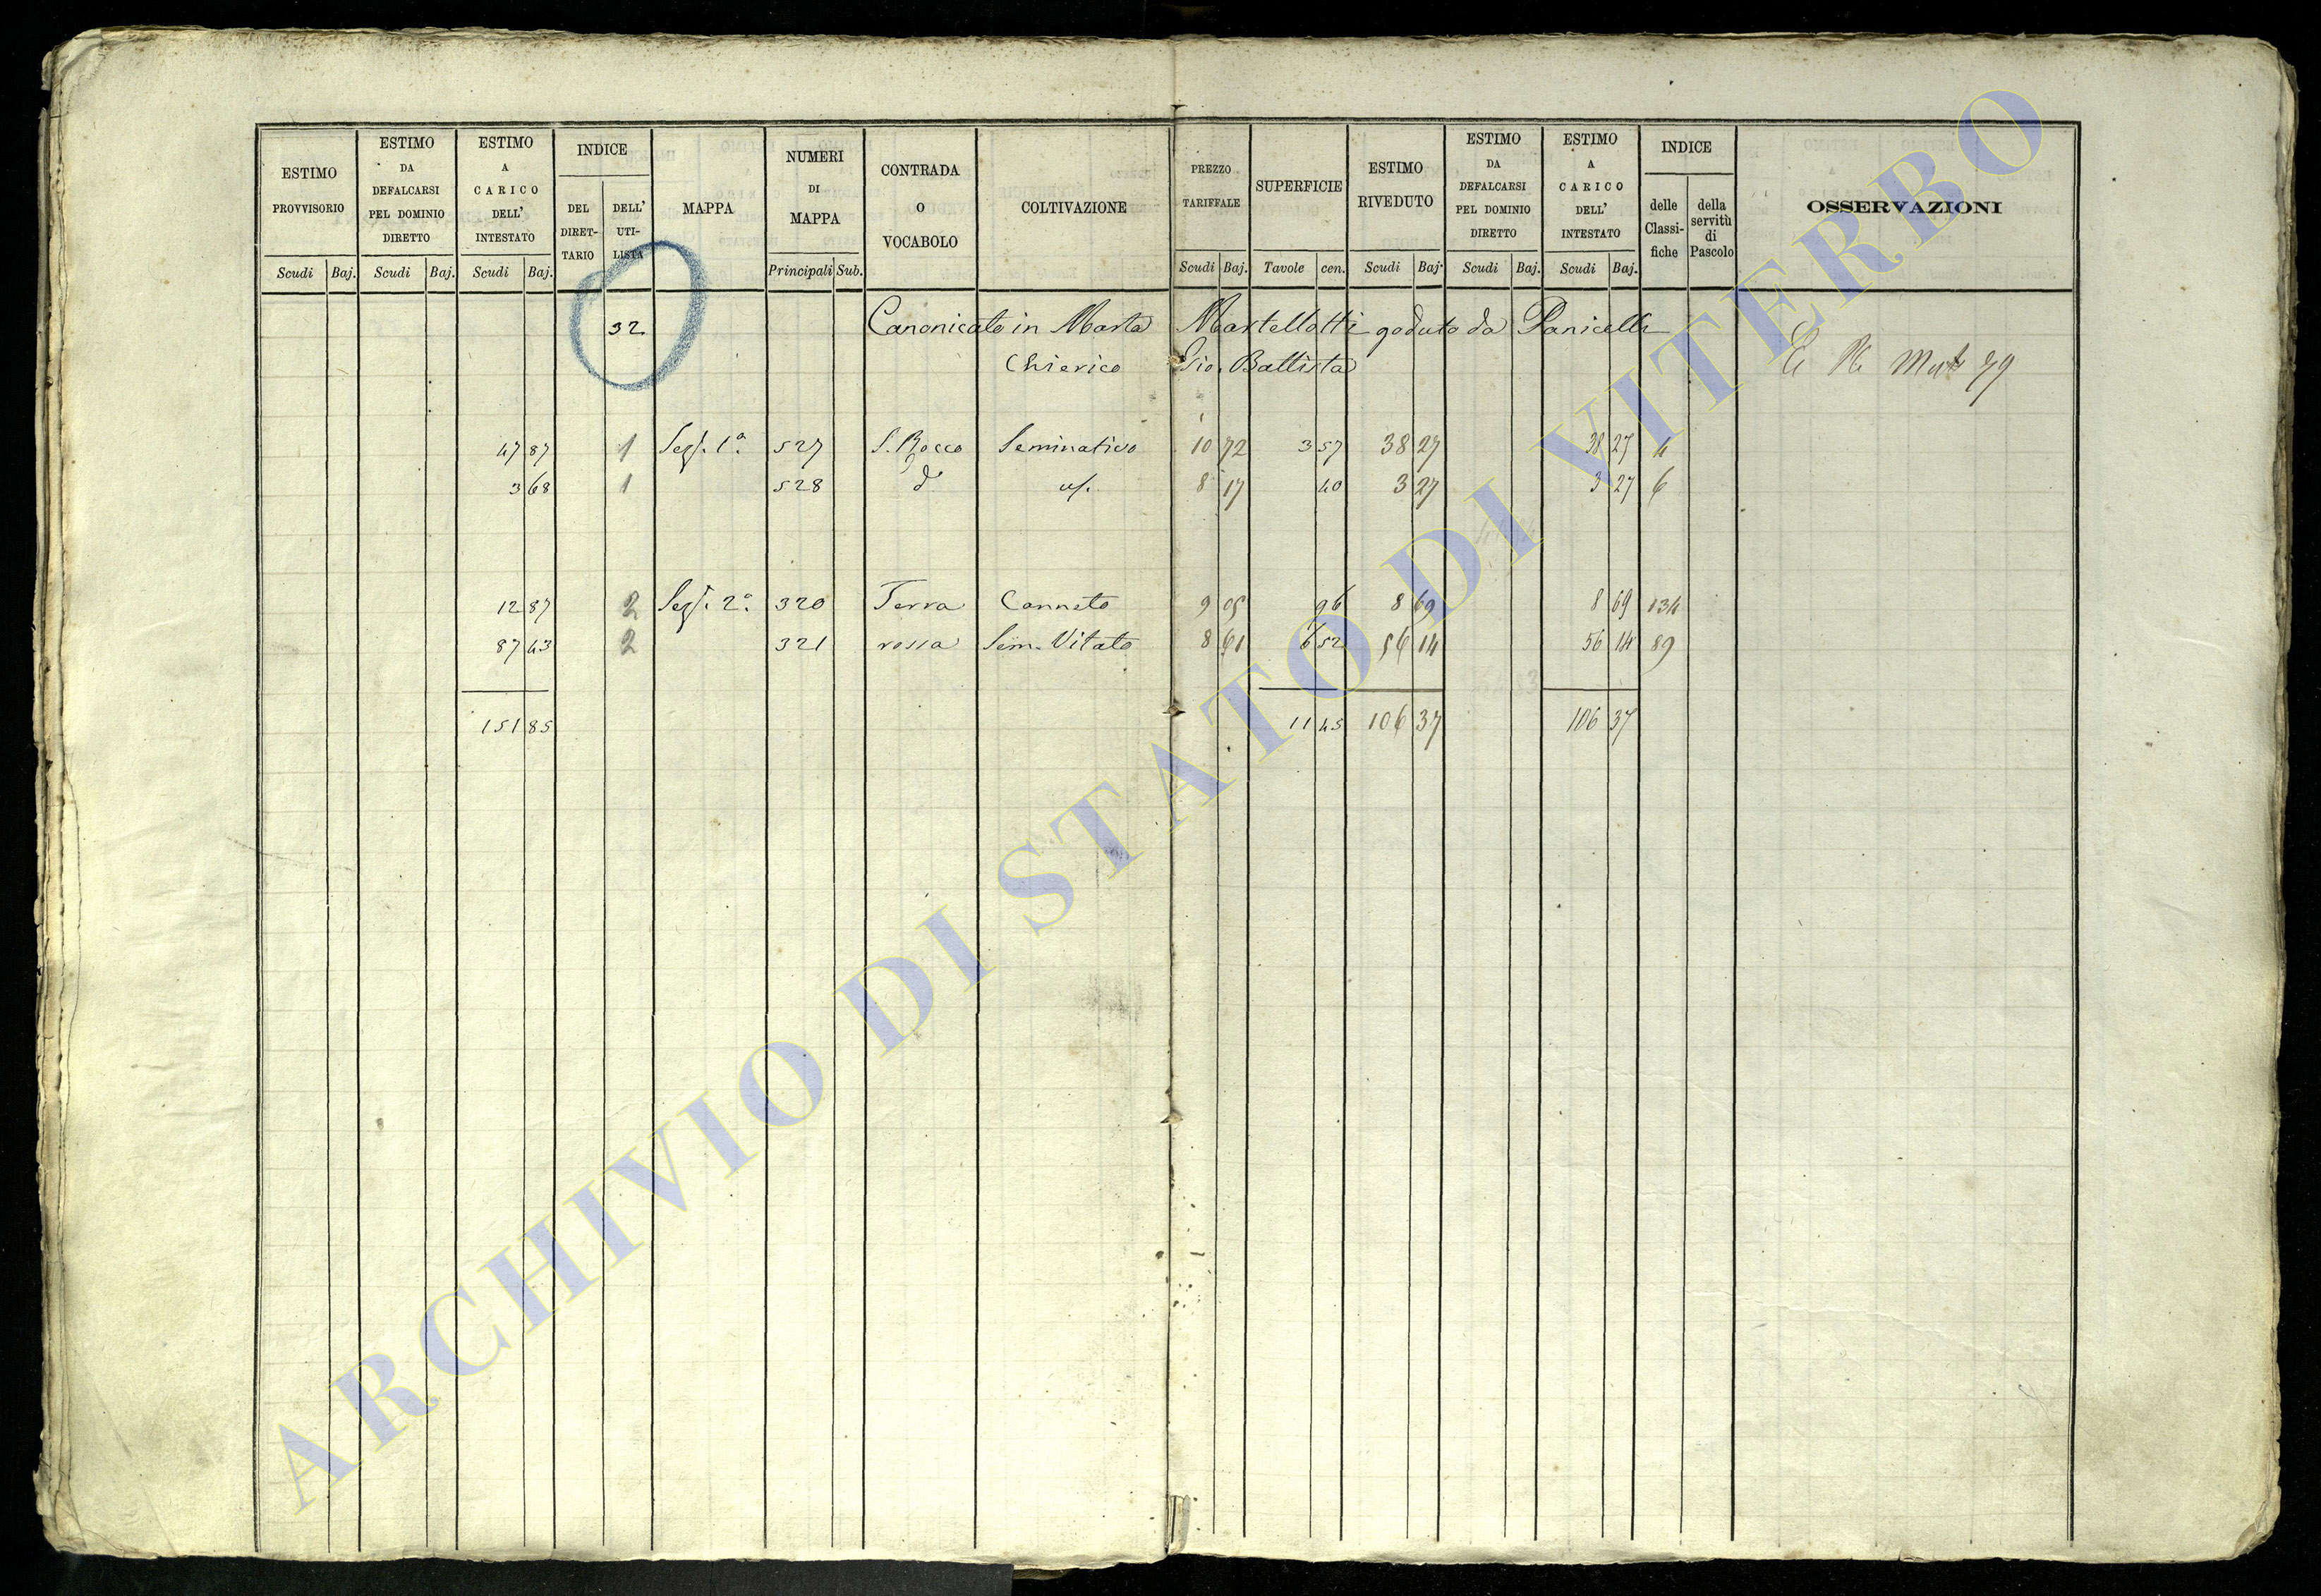 ESTIMO PROVVISORIO | ESTIMO DA DEFALCARSI PEL DOMINIO DIRETTO | ESTIMO A CARICO DELL' INTESTATO | INDICE DEL DIRET-TARIO | DELL' UTI-LISTA | MAPPA | NUMERI DI MAPPA | CONTRADA O VOCABOLO | COLTIVAZIONE | PREZZO TARIFFALE | SUPERFICIE | ESTIMO RIVEDUTO | ESTIMO DA DEFALCARSI PEL DOMINIO DIRETTO | ESTIMO A CARICO DELL' INTESTATO | INDICE delle Classi-fiche | della servitù di Pascolo | OSSERVAZIONI
Scudi Baj. Scudi Baj. Scudi Baj. Principali Sub. Scudi Baj. Tavole cen. Scudi Baj. Scudi Baj. Scudi Baj.
32 Canonicato in Marta Martellotti goduto da Panicelli
Chierico Gio. Battista
79
47 87 1 Sez. 1a. 527 S. Rocco Seminativo 10 72 3 57 38 27 38 27 4
3 68 1 528 do 8 17 40 3 27 3 27 6
12 87 2 Sez. 2a. 320 Terra Canneto 9 05 96 8 69 8 69 134
87 43 2 321 rossa Sem. Vitato 8 61 6 52 56 14 56 14 89
151 85 11 45 106 37 106 37
ARCHIVIO DI STATO DI VITERBO